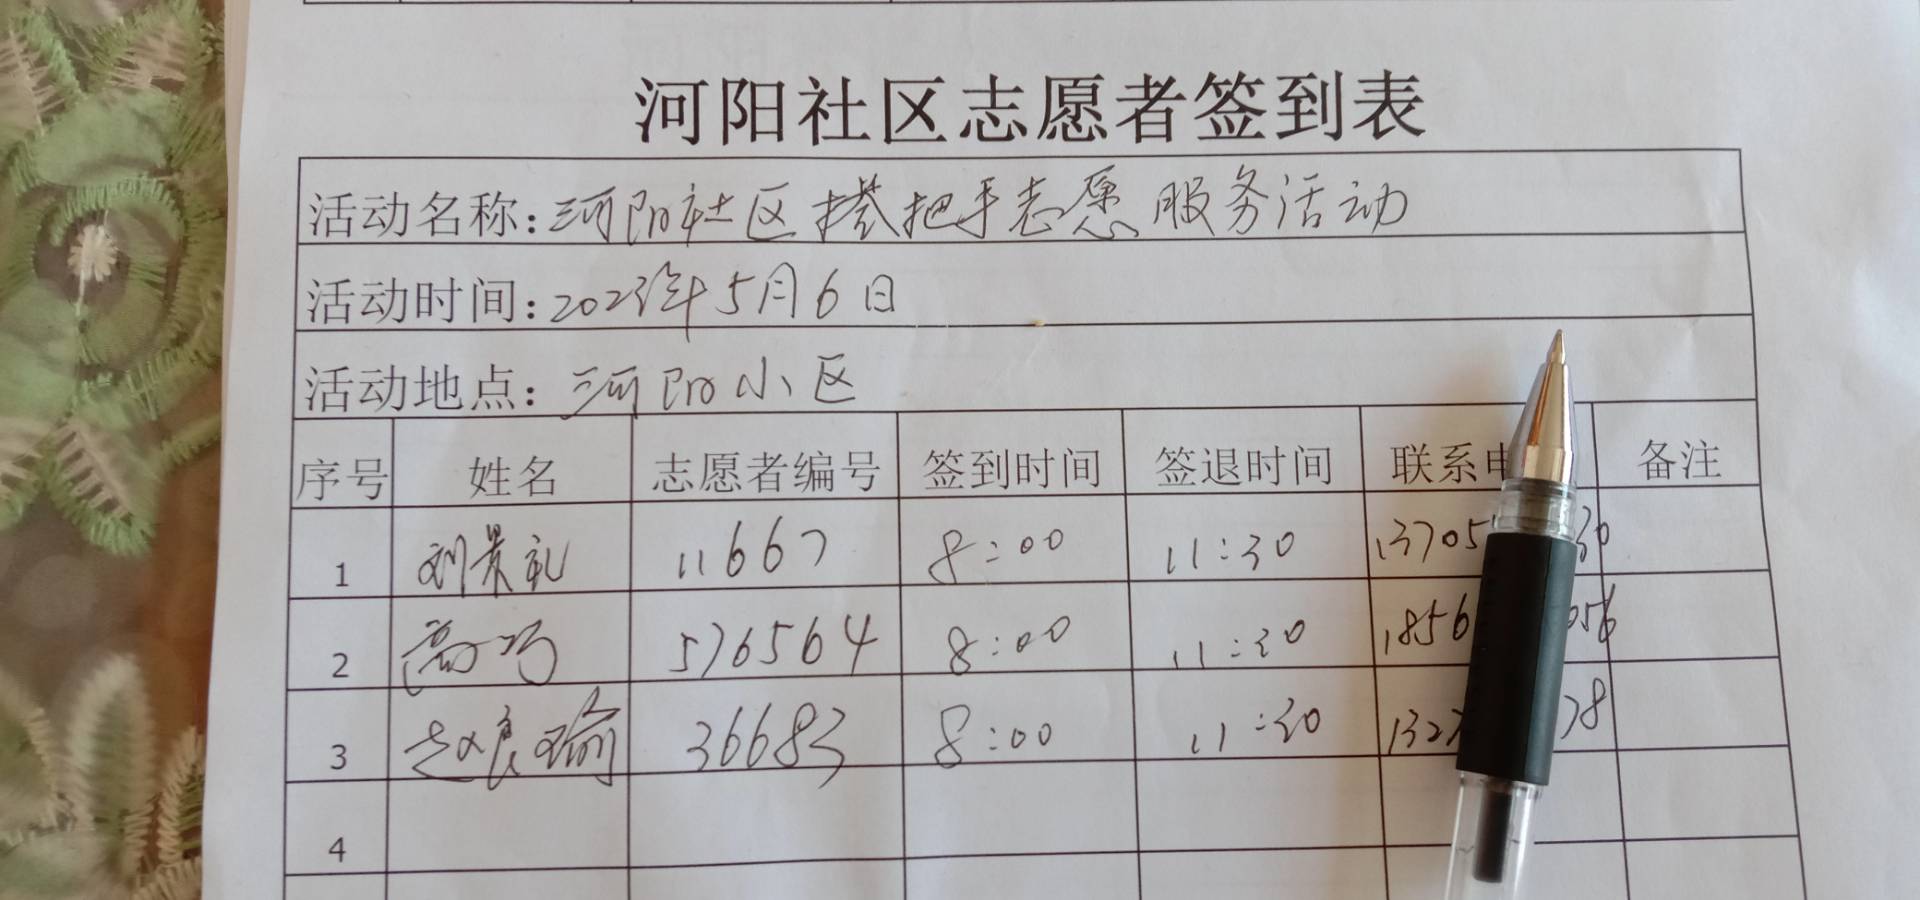 河阳社区志愿者签到表
活动名称：河阳社区搭把手志愿服务活动
活动时间：2023年5月6日
活动地点：河阳小区
序号 姓名 志愿者编号 签到时间 签退时间 联系电 备注
1 刘景礼 11667 8:00 11:30 13705 30
2 高巧 576564 8:00 11:30 1856 056
3 赵良瑜 36683 8:00 11:30 132 78
4